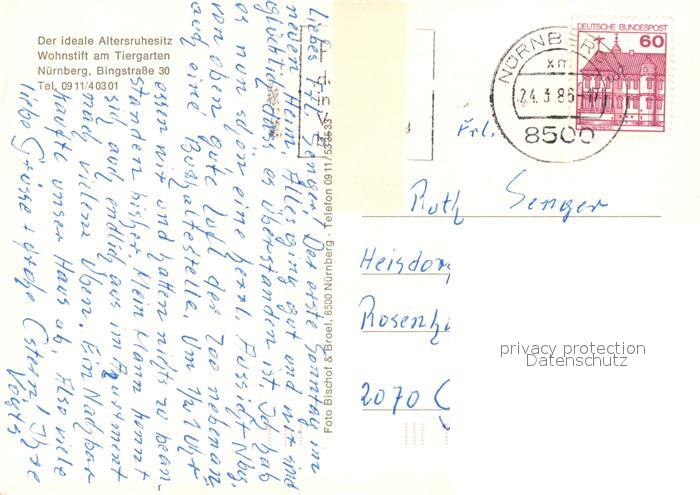 Der ideale Altersruhesitz
Wohnstift am Tiergarten
Nürnberg, Bingstraße 30
Tel. 0911/40301
Liebes Frl. Senger! Der erste Sonntag im
neuen Heim. Alles ging gut und wir sind
glücklich, dass es überstanden ist. Ich hab
es nun schön eine herrl. Aussicht Nbg.
von oben, gute Luft der Zoo nebenan
auch eine Bushaltestelle. Um 1/2 1 Uhr
essen wir und hatten nichts zu bean-
standen bisher. Mein Mann kommt
sich auch endlich aus im Apartment
nach vielem Üben. Ein Nachbar
kaufte unser Haus ab. Also viele
liebe Grüsse + frohe Ostern! Ihre
Vogts
Foto Bischof & Broel, 8500 Nürnberg · Telefon 0911/533633
DEUTSCHE BUNDESPOST
60
NÜRNBERG
24.3.86-17
8500
Frl.
Ruth Senger
Heisdor
Rosenh
2070
privacy protection
Datenschutz